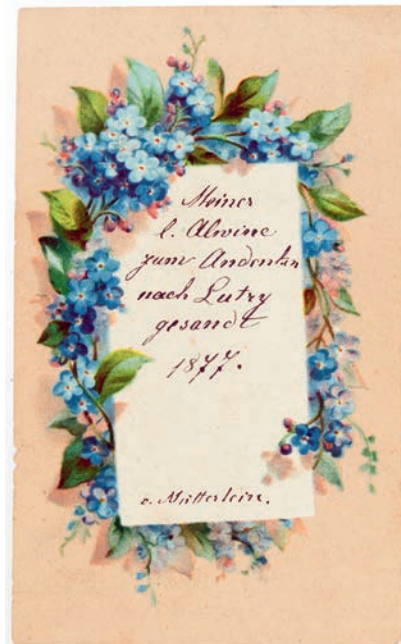 Meiner
l. Alwine
zum Andenken
nach Lutry
gesandt
1877.
v. Mütterlein.